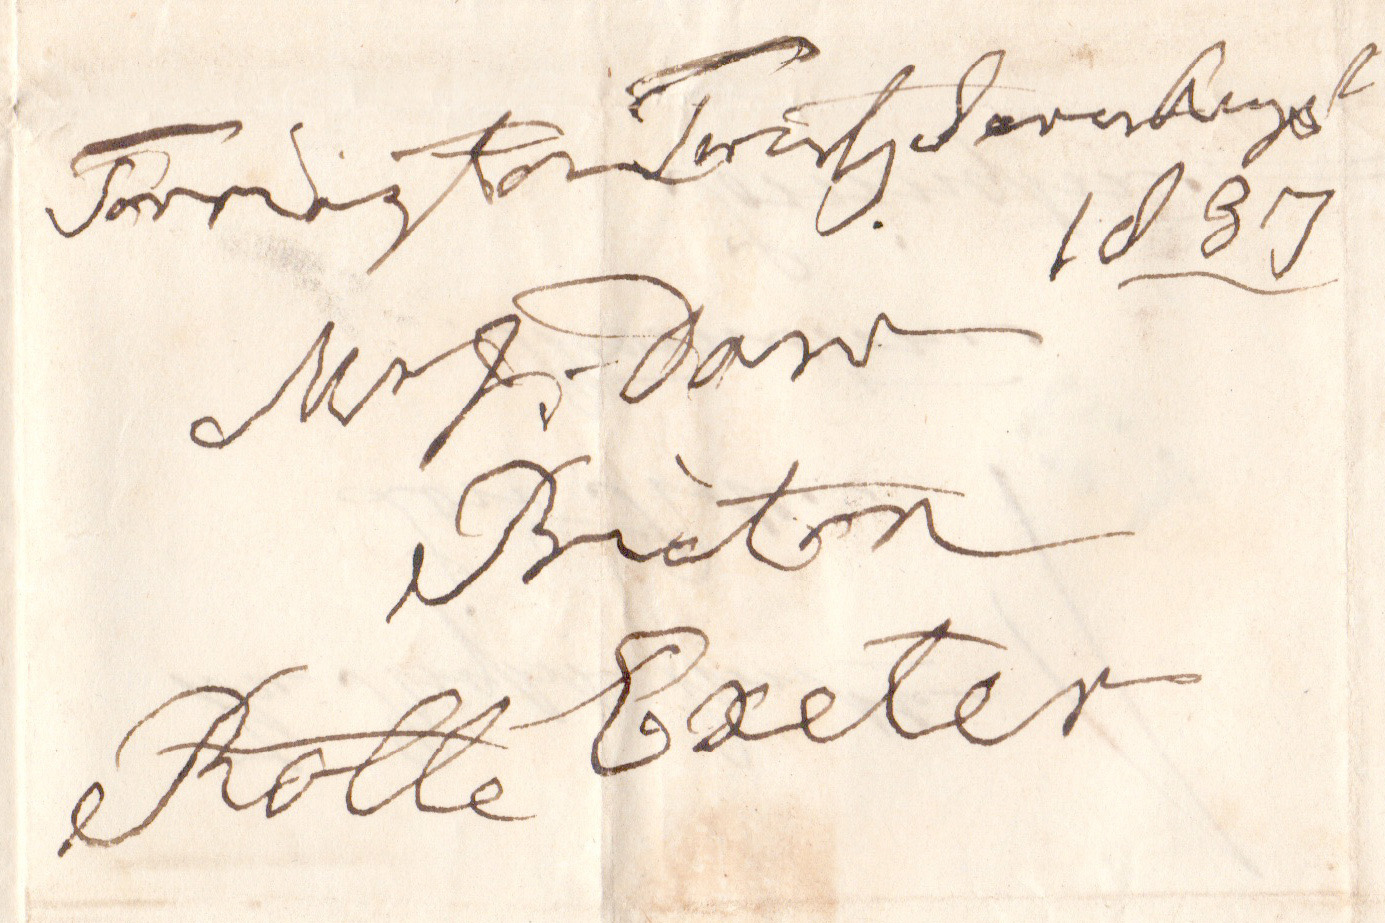 Torrington Twenty Seven August
1837
Mr J. Daw
Bicton
Rolle Exeter